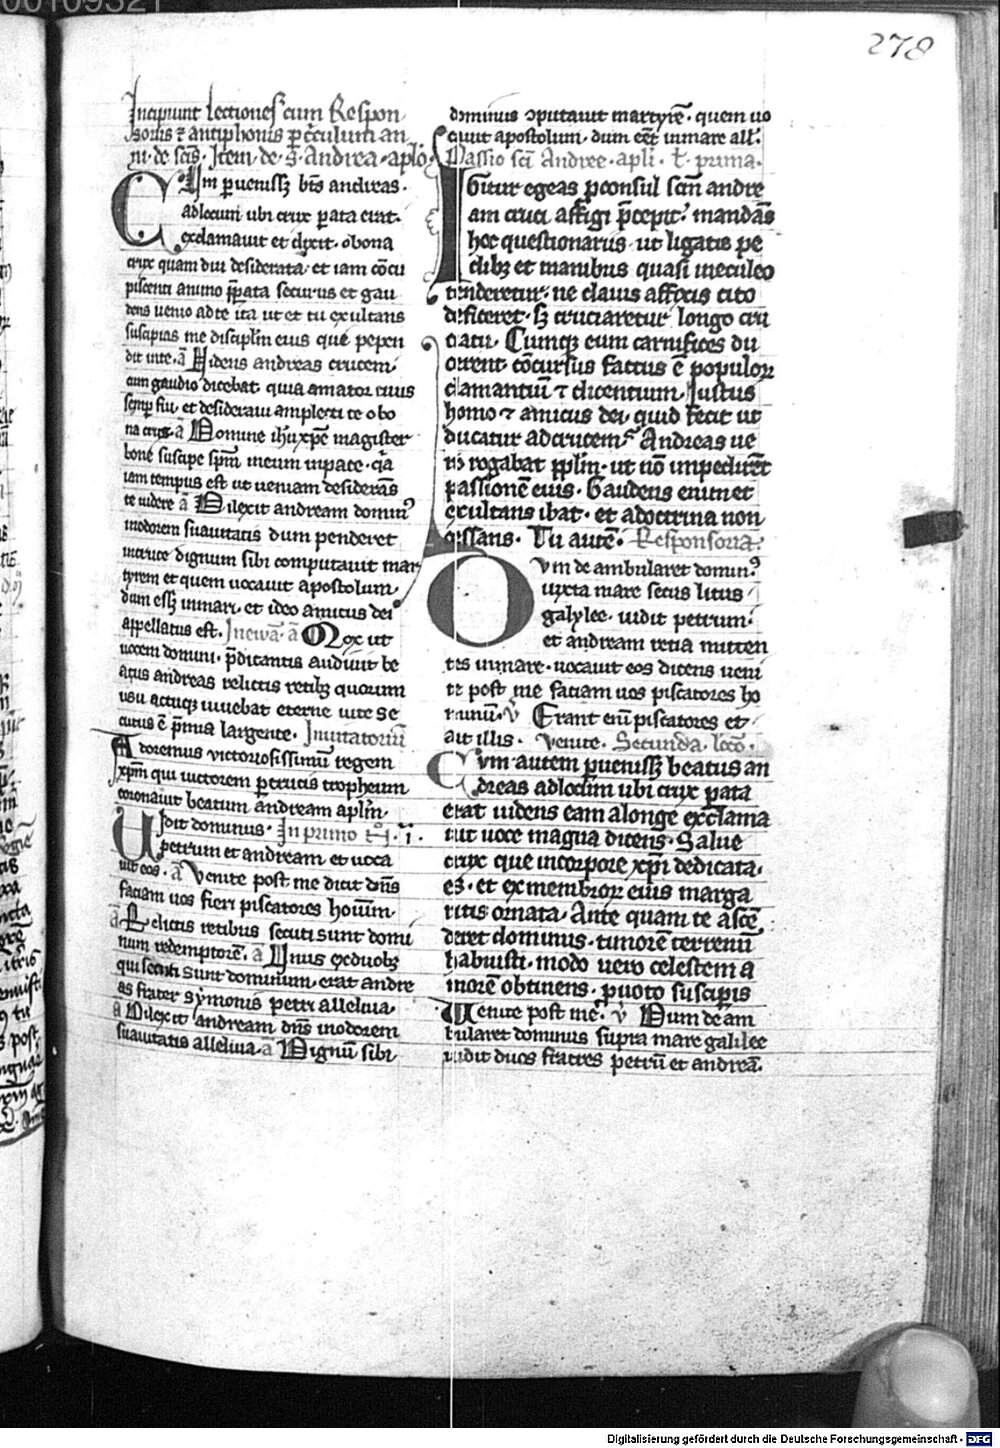 278
Incipiunt lectiones cum Respon
soriis ⁊ antiphonis ꝑ cͥculum an
ni · de scis · Item · de · s · Andrea · aplo ·
Cum ꝑuenissꝫ bts andreas ·
ad locum ubi crux ꝑata erat ·
exclamauit et dixit · o bona
crux quam diu desiderata · et iam cōcu
piscenti animo p̄parata securus et gau
dens uenio ad te ita ut et tu exultans
suscipias me disciplm eius qui pepen
dit in te · a̅ Uidens andreas crucem
cum gaudio dicebat quia amator tuus
semꝑ fui · et desideraui amplecti te o bo
na crux · a̅ Domine ihu xpe magister
bone suscipe spm meum in pace · qͥa
iam tempus est ut ueniam desiderās
te uidere a̅ Dilexit andream dominꝰ
in odorem suauitatis dum penderet
in cruce dignum sibi computauit mar
tyrem et quem uocauit apostolum ·
dum essꝫ in mari · et ideo amicus dei
appellatus est · In ewā · a̅ Mox ut
uocem domini · p̄dicantis audiuit be
atus andreas relictis retibꝫ quorum
usu actuqꝫ uiuebat eterne uite se
cutus ē p̄mia largente · Inuitatoriū
Adoremus uictoriosissimū regem
xpm qui uictorem ꝑ crucis tropheum
coronauit beatum andream aplm ·
Uidit dominus · In primo · i ·
petrum et andream et uoca
uit eos · a̅ Uenite post me dicit dns
faciam uos fieri piscatores hominum ·
a̅ Relictis retibus secuti sunt domi
num redemptorē · a̅ Unus ex duobꝫ
qui secuti sunt dominum · erat andre
as frater symonis petri alleluia ·
a̅ Dilexit andream dns in odorem
suauitatis alleluia · a̅ Dignū sibi
dominus ꝯputauit martyrē · quem uo
cauit apostolum · dum eēt in mare all ·
Passio sci Andree · apli · l · prima ·
Igitur egeas ꝓconsul scm andre
am cruci affigi p̄cepit · mandās
hoc questionariis · ut ligatis pe
dibꝫ et manibus quasi in eculeo
tenderetur · ne clauis affixis cito
deficeret · sꝫ cruciaretur longo cru
ciatu · Cumqꝫ eum carnifices du
cerent cōcursus factus ē populoꝝ
clamantiū ⁊ dicentium · Iustus
homo ⁊ amicus dei · quid fecit ut
ducatur ad crucem · Andreas ue
ro rogabat pplm · ut nō impedirēt
passionē eius · Gaudens enim et
exultans ibat · et a doctrina non
cessans · Tu autē · Responsoria ·
Dum de ambularet dominꝰ
iuxta mare secus litus
galylee · uidit petrum ·
et andream retia mitten
tes in mare · uocauit eos dicens ueni
te post me faciam uos piscatores ho
minū · v̅ Erant enī piscatores et ·
ait illis · Uenite · Secunda · lcō ·
Cum autem ꝑuenissꝫ beatus an
dreas ad locum ubi crux ꝑata
erat uidens eam a longe exclama
uit uoce magna dicens · Salue
crux que in corpore xpi dedicata ·
es · et ex membroꝝ eius marga
ritis ornata · Ante quam te ascē
deret dominus · timorē terrenū
habuisti · modo uero celestem a
morē obtinens · ꝓ uoto susciperis
Uenite post me · v̅ Dum de am
bularet dominus supra mare galilee
uidit duos fratres petrū et andreā ·
Digitalisierung gefördert durch die Deutsche Forschungsgemeinschaft - DFG